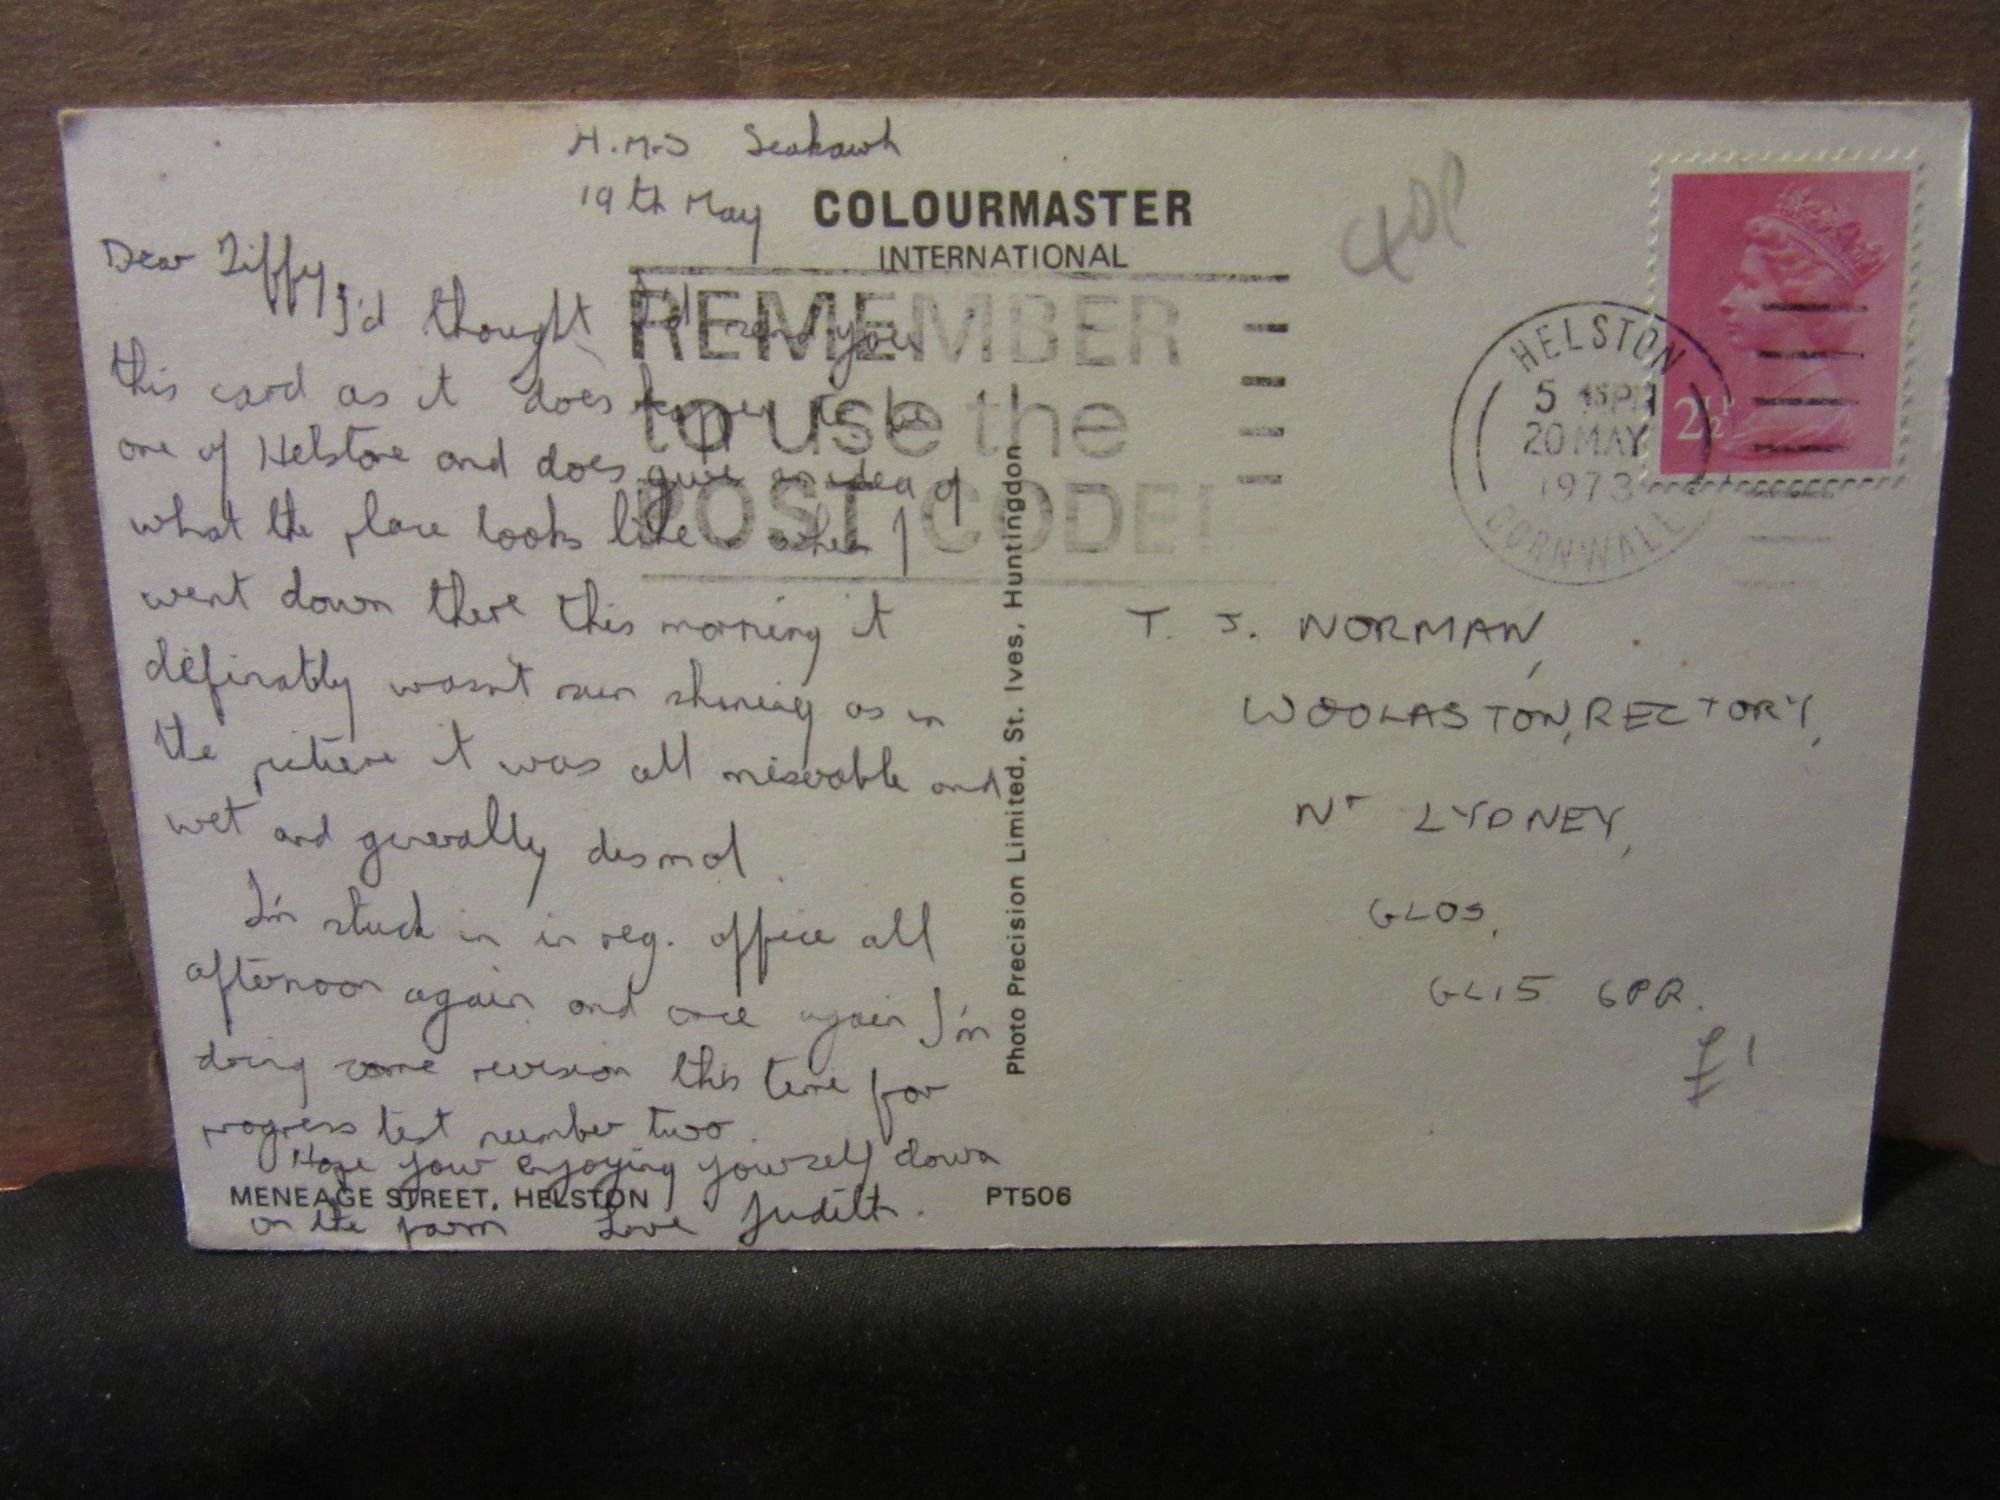 H.M.S Seahawk
19th May
COLOURMASTER
INTERNATIONAL
40p
Dear Ziffy,
I'd thought I'd send you
this card as it does happen to be
one of Helstone and does give an idea of
what the place looks like - when I
went down there this morning it
definatly wasn't sun shining as in
the picture it was all miserable and
wet and generally dismal.
I'm stuck in in reg. office all
afternoon again and once again I'm
doing some revision this time for
progress test number two.
Hope your enjoying yourself down
on the farm Love Judith.
MENEAGE STREET, HELSTON
PT506
Photo Precision Limited, St. Ives, Huntingdon
REMEMBER
to use the
POST CODE!
HELSTON
5 45PM
20 MAY
1973
CORNWALL
2½P
T. J. NORMAN,
WOOLASTON, RECTORY,
Nr LYDNEY,
GLOS,
GL15 6PR.
£1